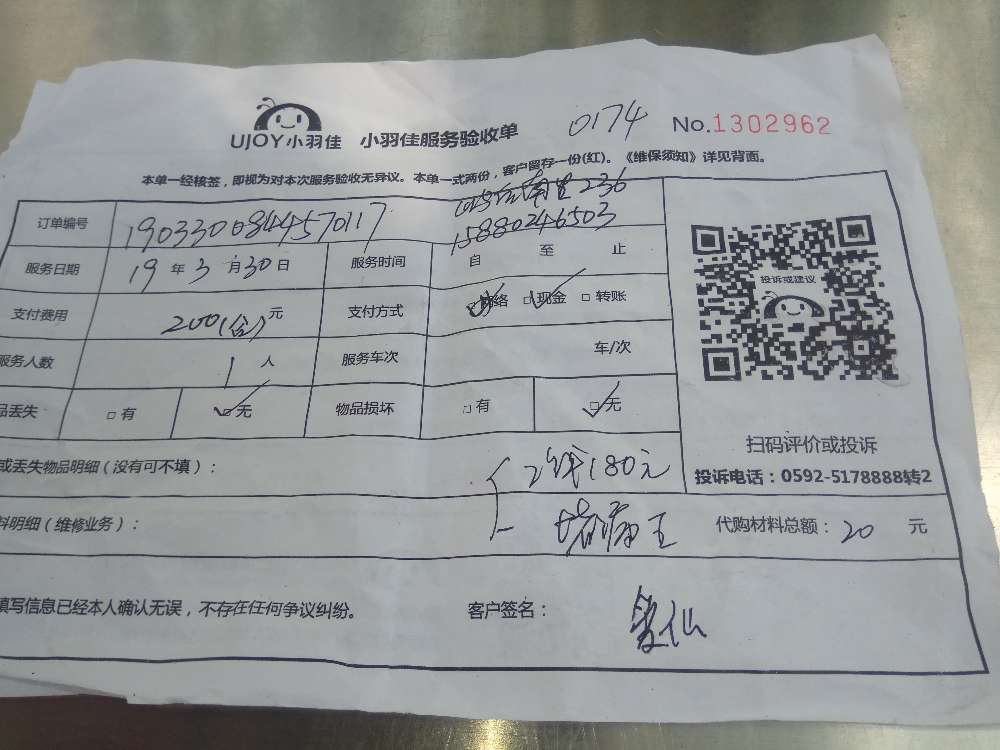 UJOY小羽佳 小羽佳服务验收单 0174 No.1302962
本单一经核签，即视为对本次服务验收无异议。本单一式两份，客户留存一份(红)。《维保须知》详见背面。
236
订单编号 1903300844570117 15880246503
服务日期 19年3月30日 服务时间 自 至 止
支付费用 200(公)元 支付方式 网络 现金 转账
服务人数 1人 服务车次 车/次
品丢失 有 无 物品损坏 有 无
投诉或建议
扫码评价或投诉
投诉电话：0592-5178888转2
或丢失物品明细（没有可不填）： 180元
料明细（维修业务）： 堵漏王 代购材料总额：20 元
填写信息已经本人确认无误，不存在任何争议纠纷。 客户签名：